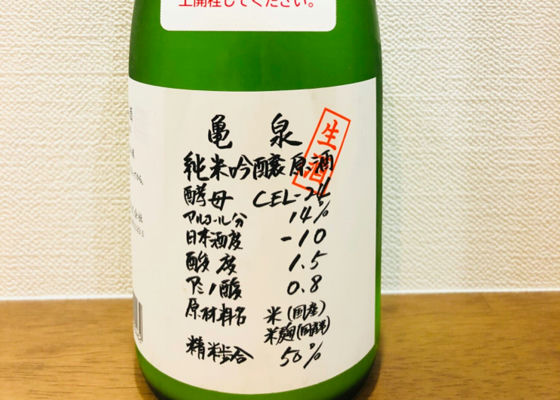 上開栓してください。
亀 泉
生酒
純米吟醸原酒
酵母 CEL-24
アルコール分 14%
日本酒度 -10
酸度 1.5
アミノ酸 0.8
原材料名 米(国産)
米麹(国産米)
精米歩合 50%